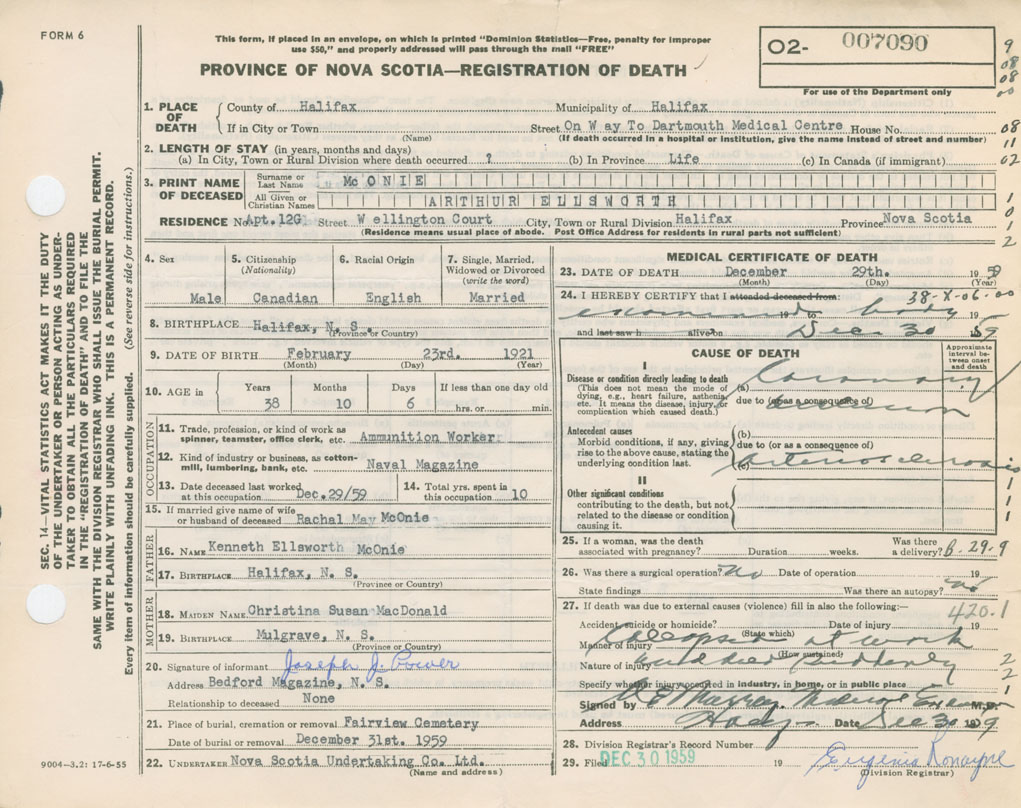 FORM 6
This form, if placed in an envelope, on which is printed "Dominion Statistics—Free, penalty for improper
use $50," and properly addressed will pass through the mail "FREE"
PROVINCE OF NOVA SCOTIA—REGISTRATION OF DEATH
O2- 007090
For use of the Department only
9
08
08
00
1. PLACE OF DEATH
County of Halifax Municipality of Halifax
If in City or Town Street On W ay To Dartmouth Medical Centre House No. 08
(Name) (If death occurred in a hospital or institution, give the name instead of street and number)
11
2. LENGTH OF STAY (in years, months and days)
(a) In City, Town or Rural Division where death occurred ? (b) In Province Life (c) In Canada (if immigrant) 02
3. PRINT NAME OF DECEASED
Surname or Last Name Mc ONIE
All Given or Christian Names ARTHUR ELLSWORTH
RESIDENCE No. Apt.12G Street W ellington Court City, Town or Rural Division Halifax Province Nova Scotia
(Residence means usual place of abode. Post Office Address for residents in rural parts not sufficient)
1
0
1
2
4. Sex 5. Citizenship (Nationality) 6. Racial Origin 7. Single, Married, Widowed or Divorced (write the word)
Male Canadian English Married
8. BIRTHPLACE Halifax, N. S.
(Province or Country)
9. DATE OF BIRTH February 23rd. 1921
(Month) (Day) (Year)
10. AGE in Years Months Days If less than one day old
38 10 6 hrs. or min.
OCCUPATION
11. Trade, profession, or kind of work as
spinner, teamster, office clerk, etc. Ammunition Worker
12. Kind of industry or business, as cotton-
mill, lumbering, bank, etc. Naval Magazine
13. Date deceased last worked at this occupation Dec.29/59 14. Total yrs. spent in this occupation 10
15. If married give name of wife
or husband of deceased Rachal May McOnie
FATHER
16. NAME Kenneth Ellsworth McOnie
17. BIRTHPLACE Halifax, N. S.
(Province or Country)
MOTHER
18. MAIDEN NAME Christina Susan MacDonald
19. BIRTHPLACE Mulgrave, N. S.
(Province or Country)
20. Signature of informant Joseph J.
Address Bedford Magazine, N. S.
Relationship to deceased None
21. Place of burial, cremation or removal Fairview Cemetery
Date of burial or removal December 31st. 1959
22. UNDERTAKER Nova Scotia Undertaking Co. Ltd.
(Name and address)
9004—3.2: 17-6-55
MEDICAL CERTIFICATE OF DEATH
23. DATE OF DEATH December 29th. 1959
(Month) (Day) (Year)
24. I HEREBY CERTIFY that I attended deceased from: 38-X-06-00
examined 19 to body 19
and last saw h alive on Dec 30 1959
CAUSE OF DEATH
Approximate interval between onset and death
I
Disease or condition directly leading to death (a) Coronary
(This does not mean the mode of
dying, e.g., heart failure, asthenia, due to (or as a consequence of)
etc. It means the disease, injury, or occlusion
complication which caused death.)
Antecedent causes (b)
Morbid conditions, if any, giving due to (or as a consequence of)
rise to the above cause, stating the
underlying condition last. (c) Arteriosclerosis
II
Other significant conditions
contributing to the death, but not
related to the disease or condition
causing it.
1
1
1
25. If a woman, was the death Was there
associated with pregnancy? Duration weeks. a delivery? B.29.9
26. Was there a surgical operation? No Date of operation 19
State findings Was there an autopsy? No
27. If death was due to external causes (violence) fill in also the following:— 420.1
Accident, suicide or homicide? Date of injury 19
(State which)
Manner of injury Collapsed at work
(How sustained)
Nature of injury and died suddenly
Specify whether injury occurred in industry, in home, or in public place
2
2
1
Signed by Murray Medical M.D.
Address Date Dec 30 1959
28. Division Registrar's Record Number
29. Filed DEC 30 1959 19 Eugenia Ronayne
(Division Registrar)
SEC. 14—VITAL STATISTICS ACT MAKES IT THE DUTY
OF THE UNDERTAKER OR PERSON ACTING AS UNDER-
TAKER TO OBTAIN ALL THE PARTICULARS REQUIRED
IN THE "REGISTRATION OF DEATH" AND TO FILE THE
SAME WITH THE DIVISION REGISTRAR WHO SHALL ISSUE THE BURIAL PERMIT.
WRITE PLAINLY WITH UNFADING INK. THIS IS A PERMANENT RECORD.
Every item of information should be carefully supplied. (See reverse side for instructions.)